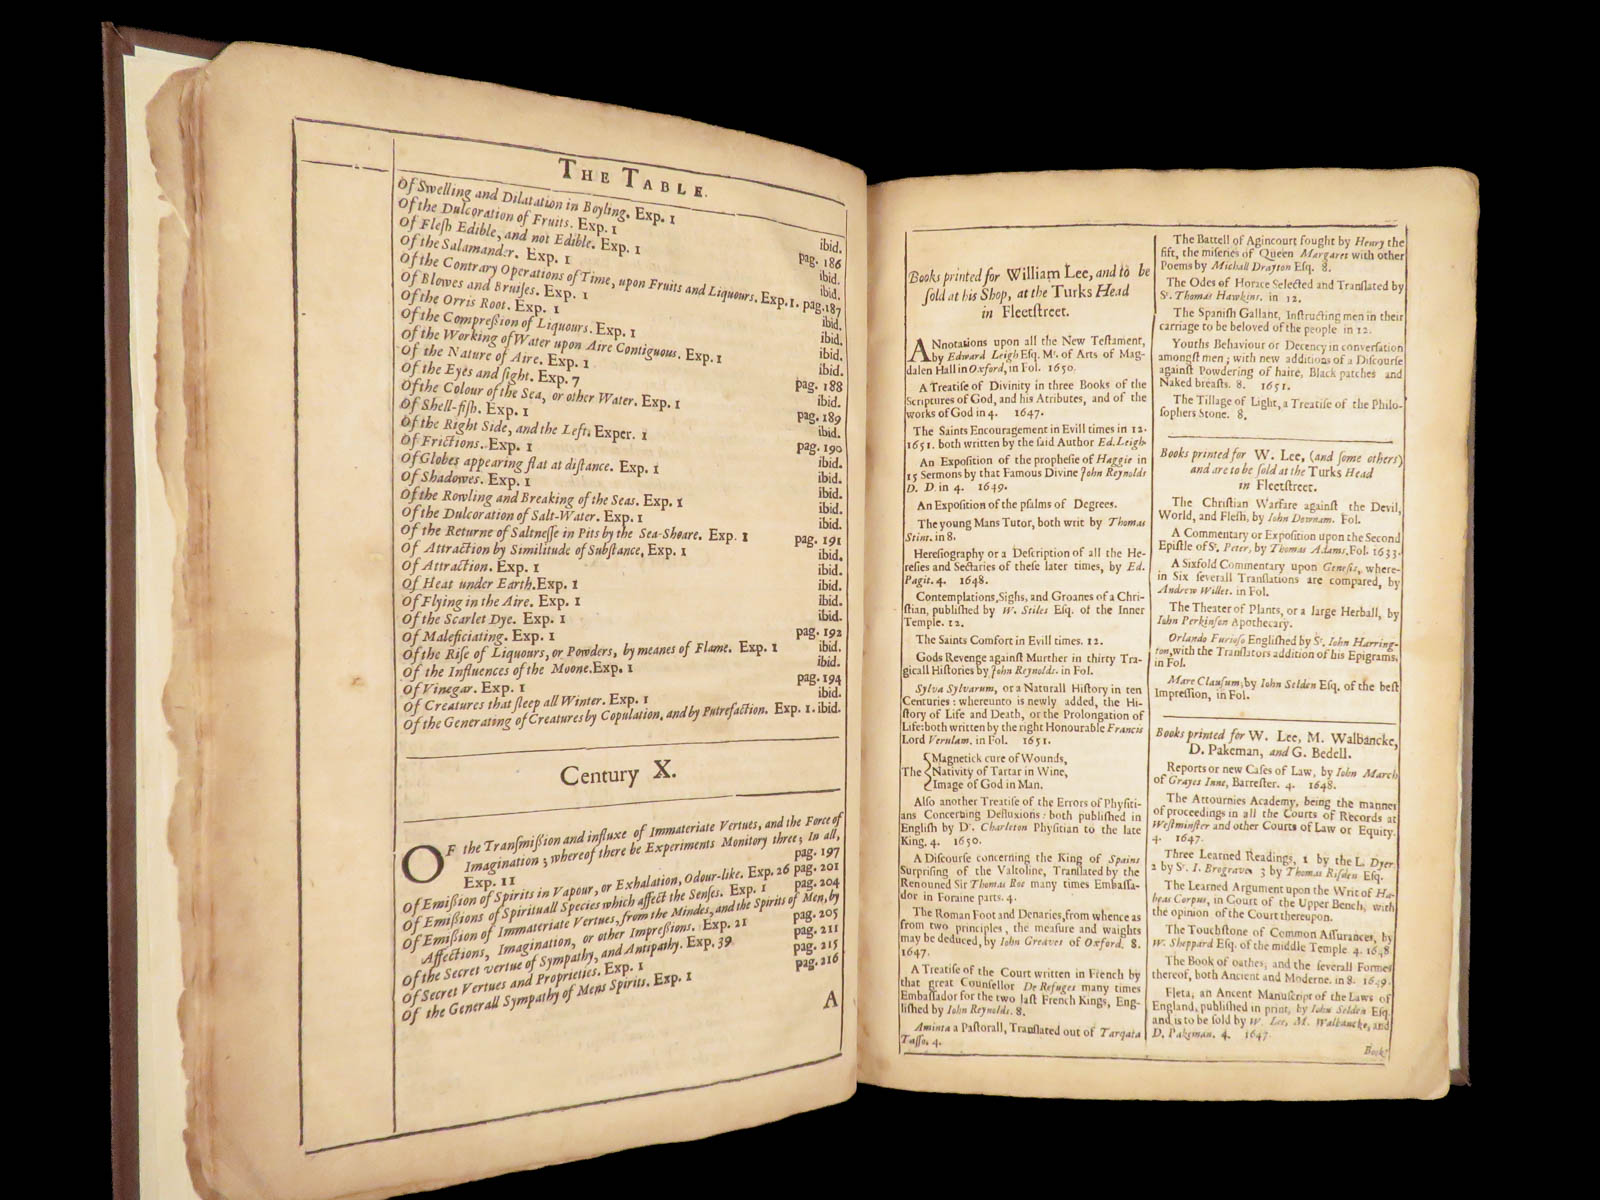 THE TABLE.
Of Swelling and Dilatation in Boyling. Exp. 1 ibid.
Of the Dulcoration of Fruits. Exp. 1 pag. 186
Of Flesh Edible, and not Edible. Exp. 1 ibid.
Of the Salamander. Exp. 1 ibid.
Of the Contrary Operations of Time, upon Fruits and Liquours. Exp. 1. pag. 187
Of Blowes and Bruises. Exp. 1 ibid.
Of the Orris Root. Exp. 1 ibid.
Of the Compression of Liquours. Exp. 1 ibid.
Of the Working of Water upon Aire Contiguous. Exp. 1 ibid.
Of the Nature of Aire. Exp. 1 pag. 188
Of the Eyes and sight. Exp. 7 ibid.
Of the Colour of the Sea, or other Water. Exp. 1 pag. 189
Of Shell-fish. Exp. 1 ibid.
Of the Right Side, and the Left. Exper. 1 pag. 190
Of Frictions. Exp. 1 ibid.
Of Globes appearing flat at distance. Exp. 1 ibid.
Of Shadowes. Exp. 1 ibid.
Of the Rowling and Breaking of the Seas. Exp. 1 ibid.
Of the Dulcoration of Salt-Water. Exp. 1 ibid.
Of the Returne of Saltnesse in Pits by the Sea-Shoare. Exp. 1 pag. 191
Of Attraction by Similitude of Substance, Exp. 1 ibid.
Of Attraction. Exp. 1 ibid.
Of Heat under Earth. Exp. 1 ibid.
Of Flying in the Aire. Exp. 1 ibid.
Of the Scarlet Dye. Exp. 1 ibid.
Of Maleficiating. Exp. 1 pag. 192
Of the Rise of Liquours, or Powders, by meanes of Flame. Exp. 1 ibid.
Of the Influences of the Moone. Exp. 1 ibid.
Of Vinegar. Exp. 1 pag. 194
Of Creatures that sleep all Winter. Exp. 1 ibid.
Of the Generating of Creatures by Copulation, and by Putrefaction. Exp. 1. ibid.
Century X.
OF the Transmission and influxe of Immateriate Vertues, and the Force of
Imagination; whereof there be Experiments Monitory three; In all,
Exp. 11 pag. 197
Of Emission of Spirits in Vapour, or Exhalation, Odour-like. Exp. 26 pag. 201
Of Emissions of Spirituall Species which affect the Senses. Exp. 1 pag. 204
Of Emission of Immateriate Vertues, from the Mindes, and the Spirits of Men, by
Affections, Imagination, or other Impressions. Exp. 21 pag. 205
Of the Secret vertue of Sympathy, and Antipathy. Exp. 39 pag. 211
Of Secret Vertues and Proprieties. Exp. 1 pag. 215
Of the Generall Sympathy of Mens Spirits. Exp. 1 pag. 216
A
Books printed for William Lee, and to be
sold at his Shop, at the Turks Head
in Fleetstreet.
ANnotations upon all the New Testament,
by Edward Leigh Esq. Mr. of Arts of Mag-
dalen Hall in Oxford, in Fol. 1650.
A Treatise of Divinity in three Books of the
Scriptures of God, and his Attributes, and of the
works of God in 4. 1647.
The Saints Encouragement in Evill times in 12.
1651. both written by the said Author Ed. Leigh.
An Exposition of the prophesie of Haggie in
15 Sermons by that Famous Divine John Reynolds
D. D. in 4. 1649.
An Exposition of the psalms of Degrees.
The young Mans Tutor, both writ by Thomas
Stint. in 8.
Heresiography or a Description of all the He-
resies and Sectaries of these later times, by Ed.
Pagit. 4. 1648.
Contemplations, Sighs, and Groanes of a Chri-
stian, published by W. Stiles Esq. of the Inner
Temple. 12.
The Saints Comfort in Evill times. 12.
Gods Revenge against Murther in thirty Tra-
gicall Histories by John Reynolds. in Fol.
Sylva Sylvarum, or a Naturall History in ten
Centuries: whereunto is newly added, the Hi-
story of Life and Death, or the Prolongation of
Life: both written by the right Honourable Francis
Lord Verulam. in Fol. 1651.
Magnetick cure of Wounds,
The Nativity of Tartar in Wine,
Image of God in Man.
Also another Treatise of the Errors of Physiti-
ans Concerning Defluxions: both published in
English by Dr. Charleton Physitian to the late
King. 4. 1650.
A Discourse concerning the King of Spains
Surprising of the Valtoline, Translated by the
Renouned Sir Thomas Roe many times Embassa-
dor in Foraine parts. 4.
The Roman Foot and Denaries, from whence as
from two principles, the measure and waights
may be deduced, by Iohn Greaves of Oxford. 8.
1647.
A Treatise of the Court written in French by
that great Counsellor De Refuges many times
Embassador for the two last French Kings, Eng-
lished by Iohn Reynolds. 8.
Aminta a Pastorall, Translated out of Tarqata
Tasso. 4.
The Battell of Agincourt fought by Henry the
fift, the miseries of Queen Margaret with other
Poems by Michall Drayton Esq. 8.
The Odes of Horace Selected and Translated by
Sr. Thomas Hawkins. in 12.
The Spanish Gallant, Instructing men in their
carriage to be beloved of the people in 12.
Youths Behaviour or Decency in conversation
amongst men; with new additions of a Discourse
against Powdering of haire, Black patches and
Naked breasts. 8. 1651.
The Tillage of Light, a Treatise of the Philo-
sophers Stone. 8.
Books printed for W. Lee, (and some others)
and are to be sold at the Turks Head
in Fleetstreet.
The Christian Warfare against the Devil,
World, and Flesh, by Iohn Downam. Fol.
A Commentary or Exposition upon the Second
Epistle of St. Peter, by Thomas Adams, Fol. 1633.
A Sixfold Commentary upon Genesis, where-
in Six severall Translations are compared, by
Andrew Willet. in Fol.
The Theater of Plants, or a large Herball, by
Iohn Perkinson Apothecary.
Orlando Furioso Englished by Sr. Iohn Harring-
ton, with the Translators addition of his Epigrams.
in Fol.
Mare Clausum, by Iohn Selden Esq. of the best
Impression, in Fol.
Books printed for W. Lee, M. Walbancke,
D. Pakeman, and G. Bedell.
Reports or new Cases of Law, by Iohn March
of Grayes Inne, Barrester. 4. 1648.
The Attournies Academy, being the manner
of proceedings in all the Courts of Records at
Westminster and other Courts of Law or Equity.
4. 1647.
Three Learned Readings, 1 by the L. Dyer
2 by Sr. I. Brograve 3 by Thomas Risden Esq.
The Learned Argument upon the Writ of Ha-
beas Corpus, in Court of the Upper Bench, with
the opinion of the Court thereupon.
The Touchstone of Common Assurances, by
W. Sheppard Esq. of the middle Temple 4. 1648
The Book of oathes, and the severall Formes
thereof, both Ancient and Moderne. in 8. 1649.
Fleta, an Ancent Manuscript of the Laws of
England, published in print, by Iohn Selden Esq.
and is to be sold by W. Lee, M. Walbancke, and
D. Pakeman. 4. 1647.
Books